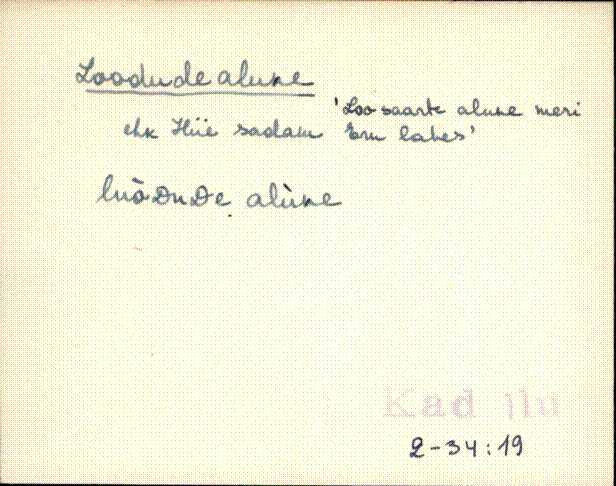 Loodude alune
'Loosaarte alune meri
ehk Hiie sadam Eru lahes'
luòDuDe alùne
Kad
2-34:19